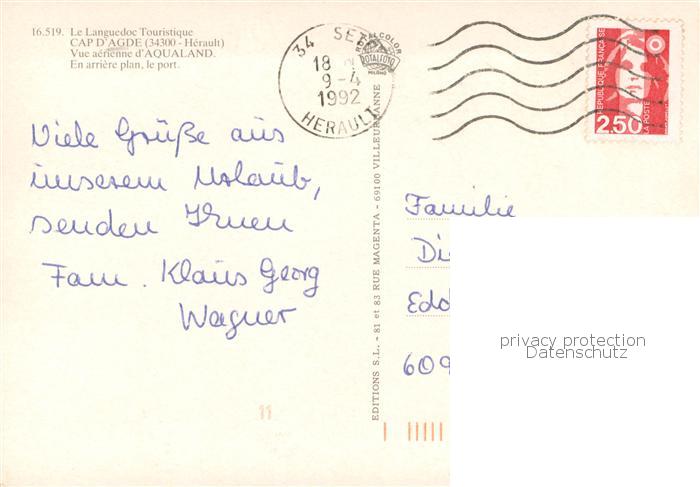 16.519. Le Languedoc Touristique
CAP D'AGDE (34300 - Hérault)
Vue aérienne d'AQUALAND.
En arrière plan, le port.
34 SETE
18
9-4
1992
HERAULT
ROTALCOLOR
ROTALFOTO
MILANO
REPUBLIQUE FRANÇAISE
2.50
LA POSTE
Viele Grüße aus
unserem Urlaub,
senden Ihnen
Fam. Klaus Georg
Wagner
EDITIONS S.L. - 81 et 83 RUE MAGENTA - 69100 VILLEURBANNE
Familie
Di
Edo
609
privacy protection
Datenschutz
11